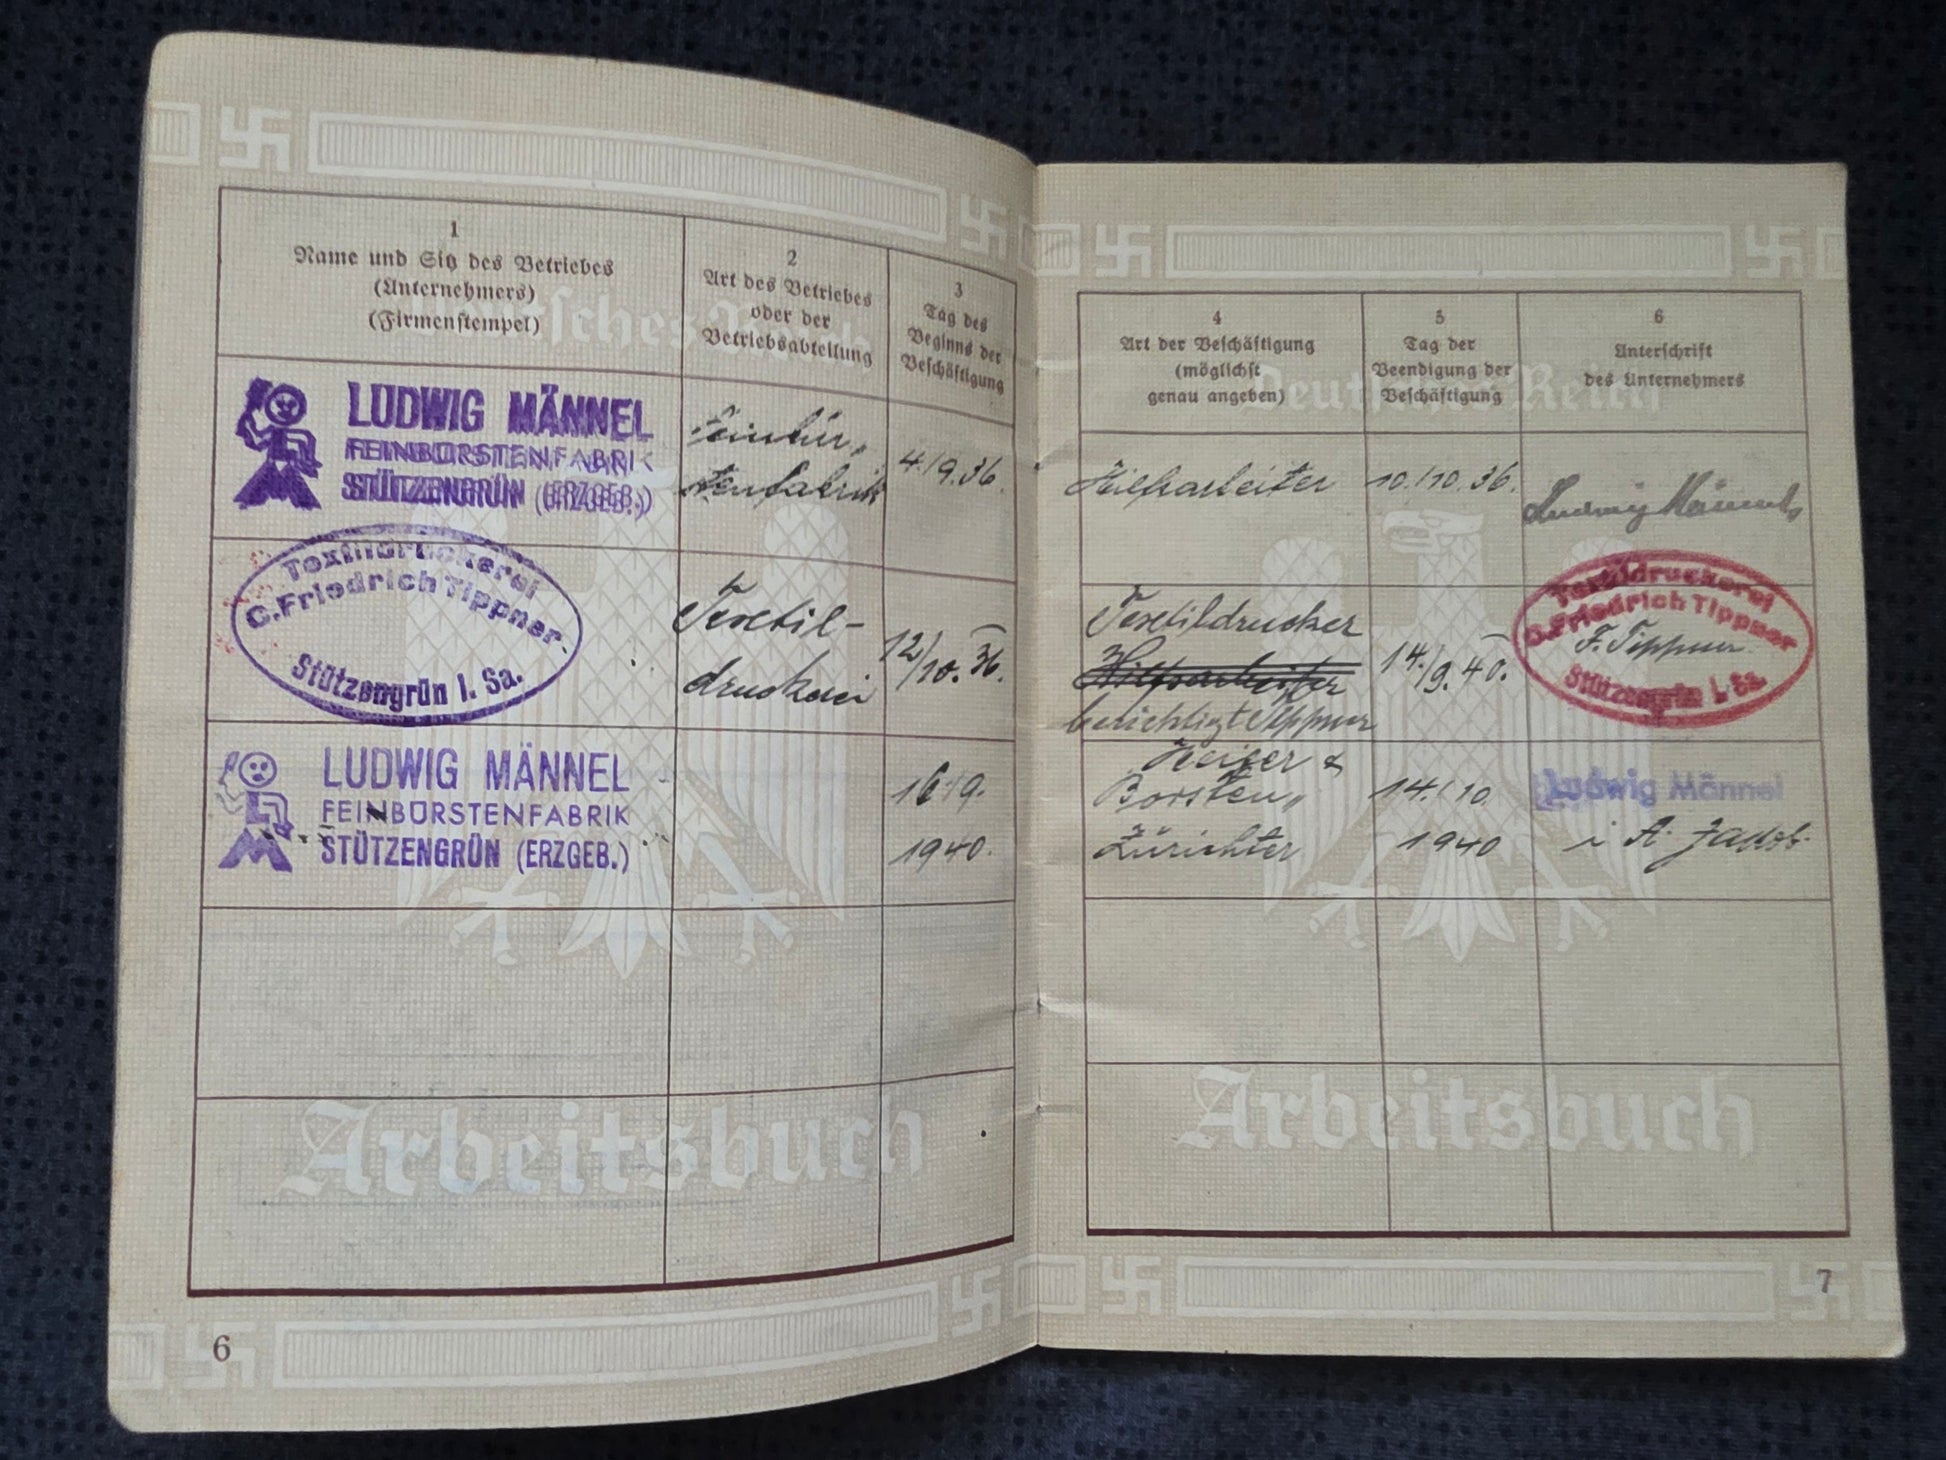 1
Name und Sitz des Betriebes
(Unternehmers)
(Firmenstempel)
2
Art des Betriebes
oder der
Betriebsabteilung
3
Tag des
Beginns der
Beschäftigung
LUDWIG MÄNNEL
FEINBÜRSTENFABRIK
STÜTZENGRÜN (ERZGEB.)
Feinbür„
stenfabrik
4./9.36.
Textildruckerei
C. Friedrich Tippner
Stützengrün i. Sa.
Textil-
druckerei
12/10.36.
LUDWIG MÄNNEL
FEINBÜRSTENFABRIK
STÜTZENGRÜN (ERZGEB.)
16/9.
1940.
Arbeitsbuch
6
4
Art der Beschäftigung
(möglichst
genau angeben)
5
Tag der
Beendigung der
Beschäftigung
6
Unterschrift
des Unternehmers
Deutsches Reich
Hilfsarbeiter
10./10.36.
Ludwig Männel
Textildrucker
Hilfsarbeiter
berichtigt Tippner
14./9.40.
Textildruckerei
C. Friedrich Tippner
F. Tippner
Stützengrün i. Sa.
&
Borsten„
Zurichter
14./10.
1940
Ludwig Männel
i A.
Arbeitsbuch
7